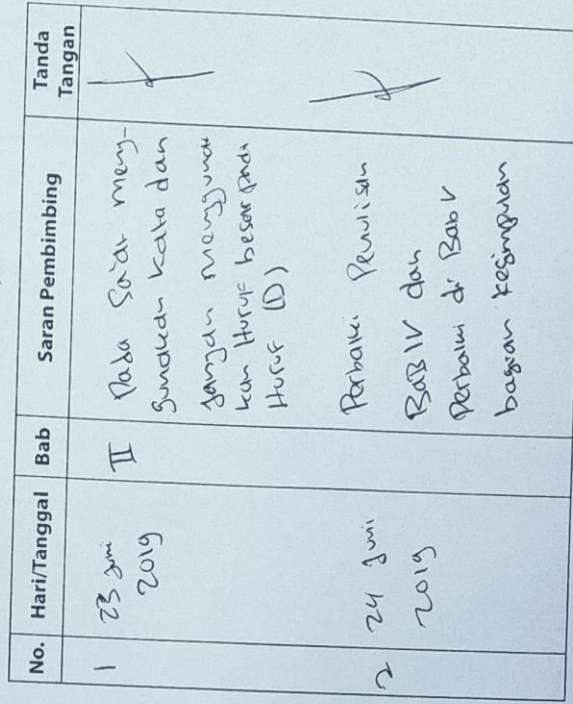 No. Hari/Tanggal Bab Saran Pembimbing Tanda Tangan
1 23 Juni 2019 II Pada Sa'at meng-
gunakan kata dan
jangan menggunak
kan Huruf besar pada
Huruf (D)
2 24 Juni 2019 Perbaiki Penulisan
BaB IV dan
Perbaiki di Bab V
bagian kesimpulan